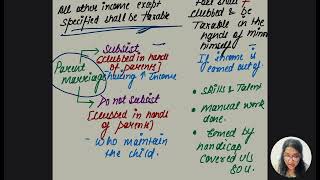 All other income except
specified shall be taxable
Parent
marriage
Subsist
[clubbed in hands
of parents]
having ↑ Income
Do not subsist
[clubbed in hands of
parents]
- Who maintain
the child.
shall
clubbed & be
Taxable in the
hands of minor
himself
If income is
earned out of.
• Skills & Talent
• Manual work
done.
• Earned by
handicap
covered u/s
80U.